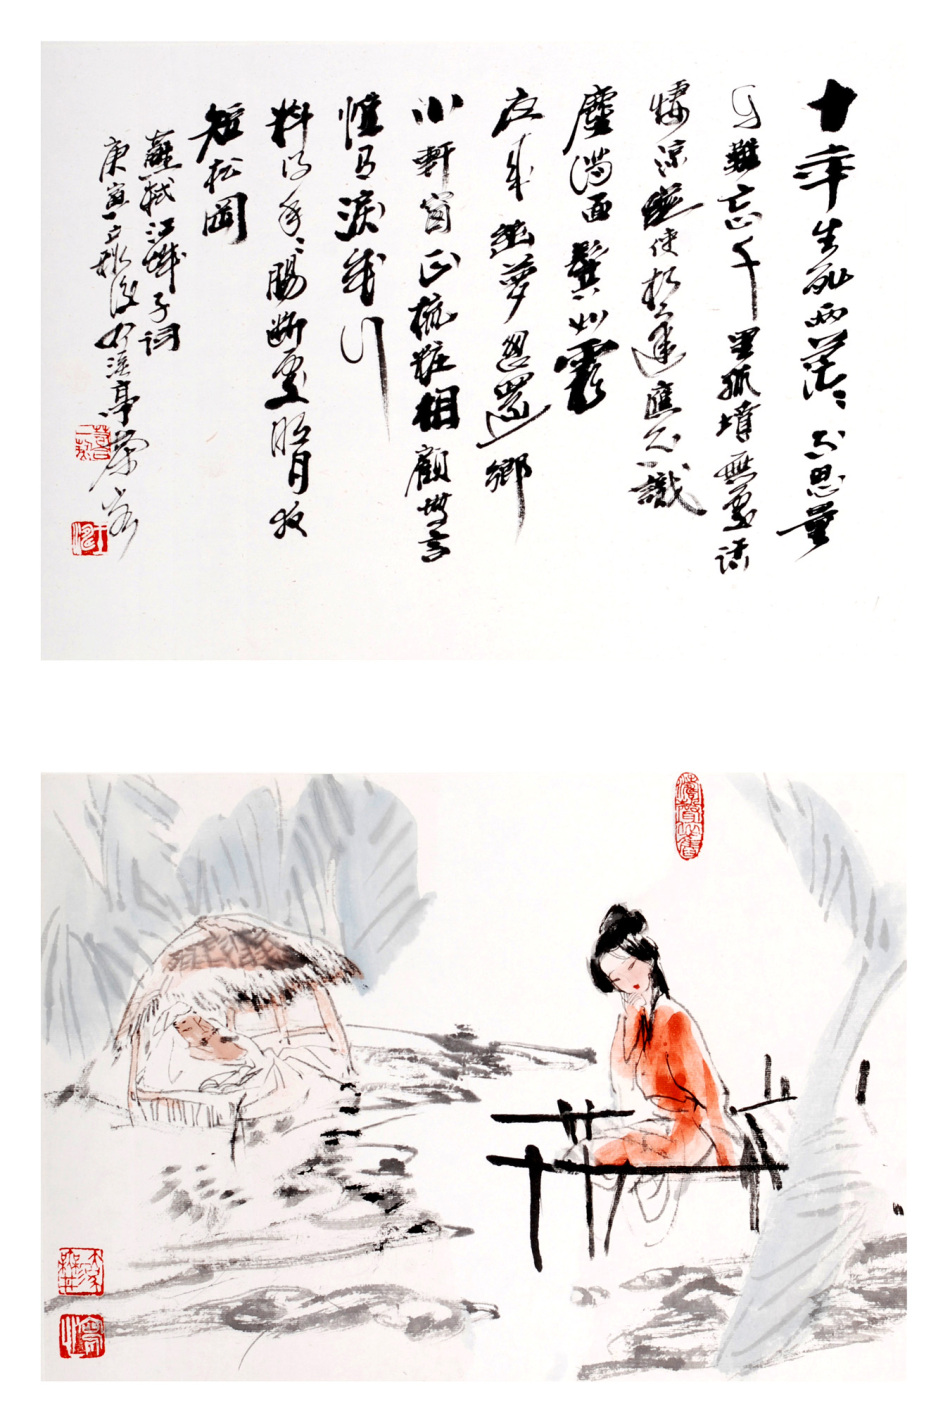 十年生死兩茫々不思量
自難忘千里孤墳無處話
悽涼縱使相逢應不識
塵滿面鬢如霜
夜來幽夢忽還鄉
小軒窗正梳粧相顧無言
惟有淚千行
料得年々腸斷處明月夜
短松岡
蘇軾江城子詞
庚寅立秋後